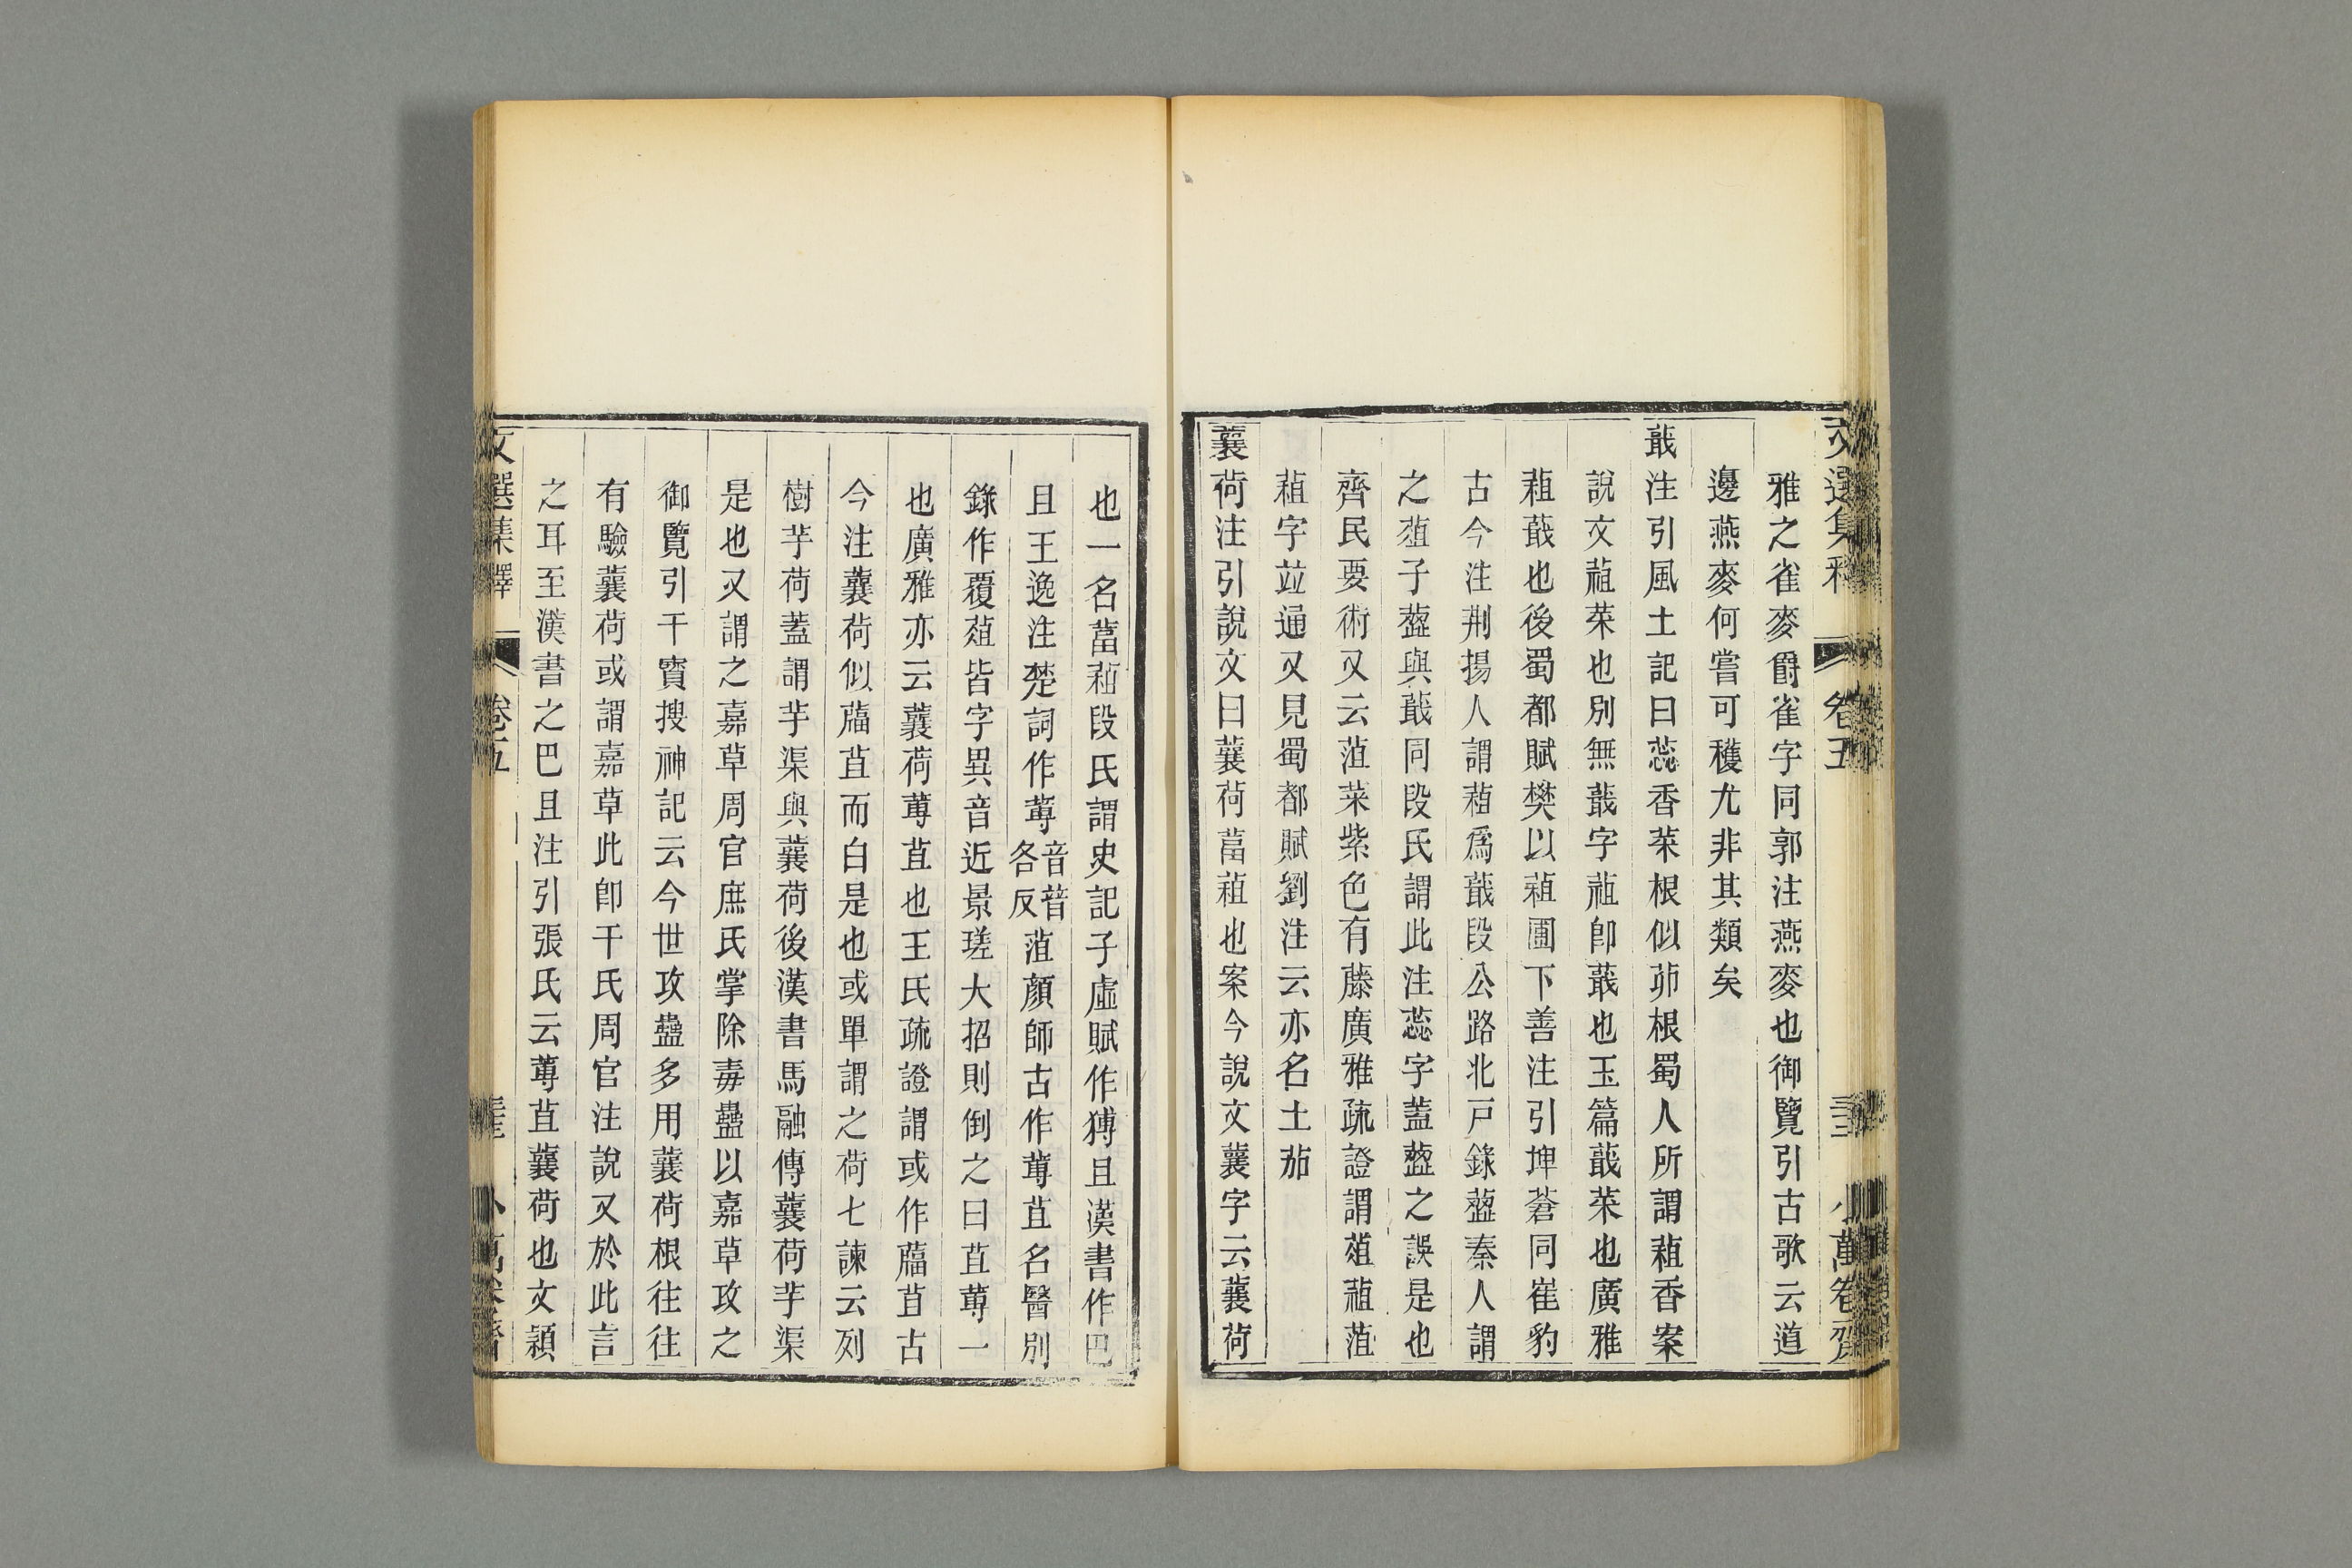 文選集釋 卷五 三三 小萬卷齋
雅之雀麥爵雀字同郭注燕麥也御覽引古歌云道
邊燕麥何嘗可穫尤非其類矣
蕺注引風土記曰蕊香菜根似茆根蜀人所謂葅香案
說文葅菜也別無蕺字葅卽蕺也玉篇蕺菜也廣雅
葅蕺也後蜀都賦樊以葅圃下善注引埤蒼同崔豹
古今注荆揚人謂葅爲蕺段公路北戸錄蘁秦人謂
之葅子蘁與蕺同段氏謂此注蕊字蓋蘁之誤是也
齊民要術又云菹菜紫色有藤廣雅疏證謂葅蒩菹
蒩字竝通又見蜀都賦劉注云亦名土茄
蘘荷注引說文曰蘘荷葍蒩也案今說文蘘字云蘘荷
也一名葍蒩段氏謂史記子虛賦作猼且漢書作巴
且王逸注楚詞作蓴音各菹顏師古作蓴苴名醫別
錄作覆葅皆字異音近景瑳大招則倒之曰苴蓴一
也廣雅亦云蘘荷蓴苴也王氏疏證謂或作葍苴古
今注蘘荷似葍苴而白是也或單謂之荷七諫云列
樹芋荷蓋謂芋渠與蘘荷後漢書馬融傳蘘荷芋渠
是也又謂之嘉草周官庶氏掌除毒蠱以嘉草攻之
御覽引干寶搜神記云今世攻蠱多用蘘荷根往往
有驗蘘荷或謂嘉草此卽干氏周官注說又於此言
之耳至漢書之巴且注引張氏云蓴苴蘘荷也文穎
文選集釋 卷五 小萬卷齋